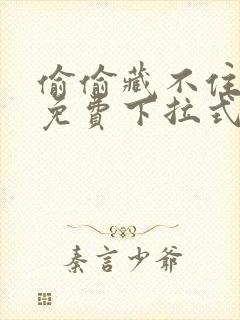 偷偷藏不住
免費下拉式
秦言少爺